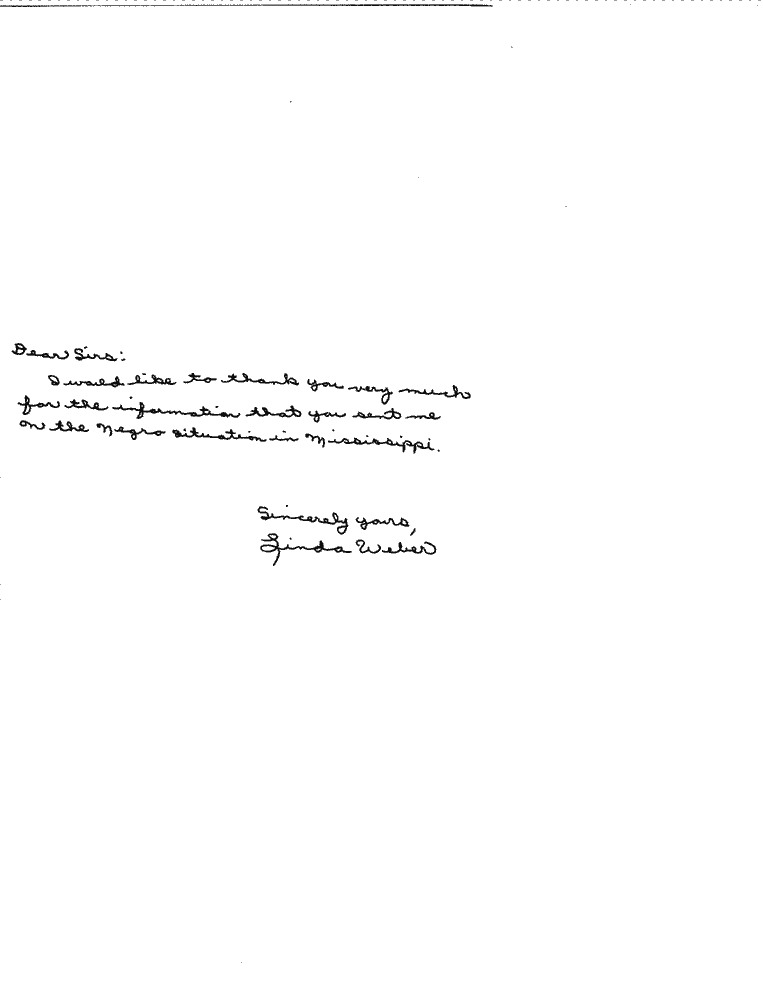 Dear Sirs:
I would like to thank you very much
for the information that you sent me
on the Negro situation in Mississippi.
Sincerely yours,
Linda Weber